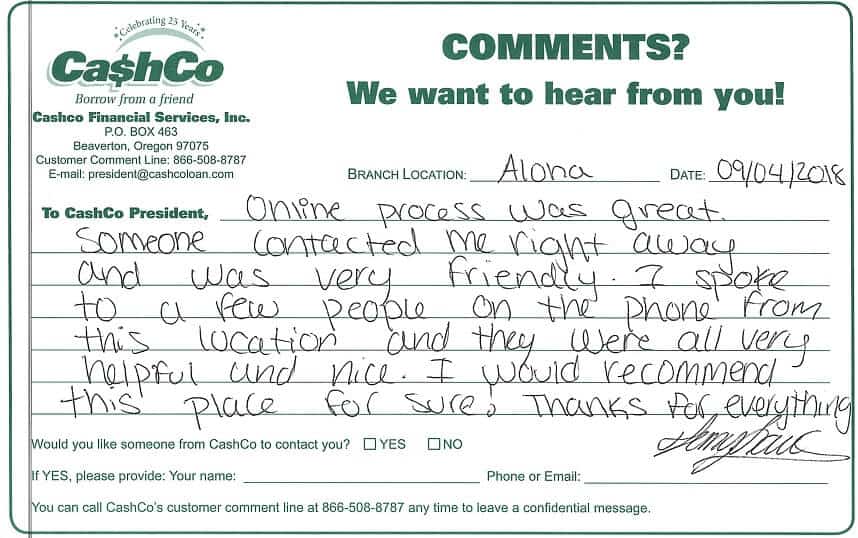 Celebrating 25 Years
Ca$hCo
Borrow from a friend
Cashco Financial Services, Inc.
P.O. BOX 463
Beaverton, Oregon 97075
Customer Comment Line: 866-508-8787
E-mail: president@cashcoloan.com
COMMENTS?
We want to hear from you!
BRANCH LOCATION: Alona DATE: 09/04/2018
To CashCo President, Online process was great.
Someone contacted me right away
and was very friendly. I spoke
to a few people on the phone from
this location and they were all very
helpful and nice. I would recommend
this place for sure! Thanks for everything
Would you like someone from CashCo to contact you? YES NO
If YES, please provide: Your name: Phone or Email:
You can call CashCo's customer comment line at 866-508-8787 any time to leave a confidential message.